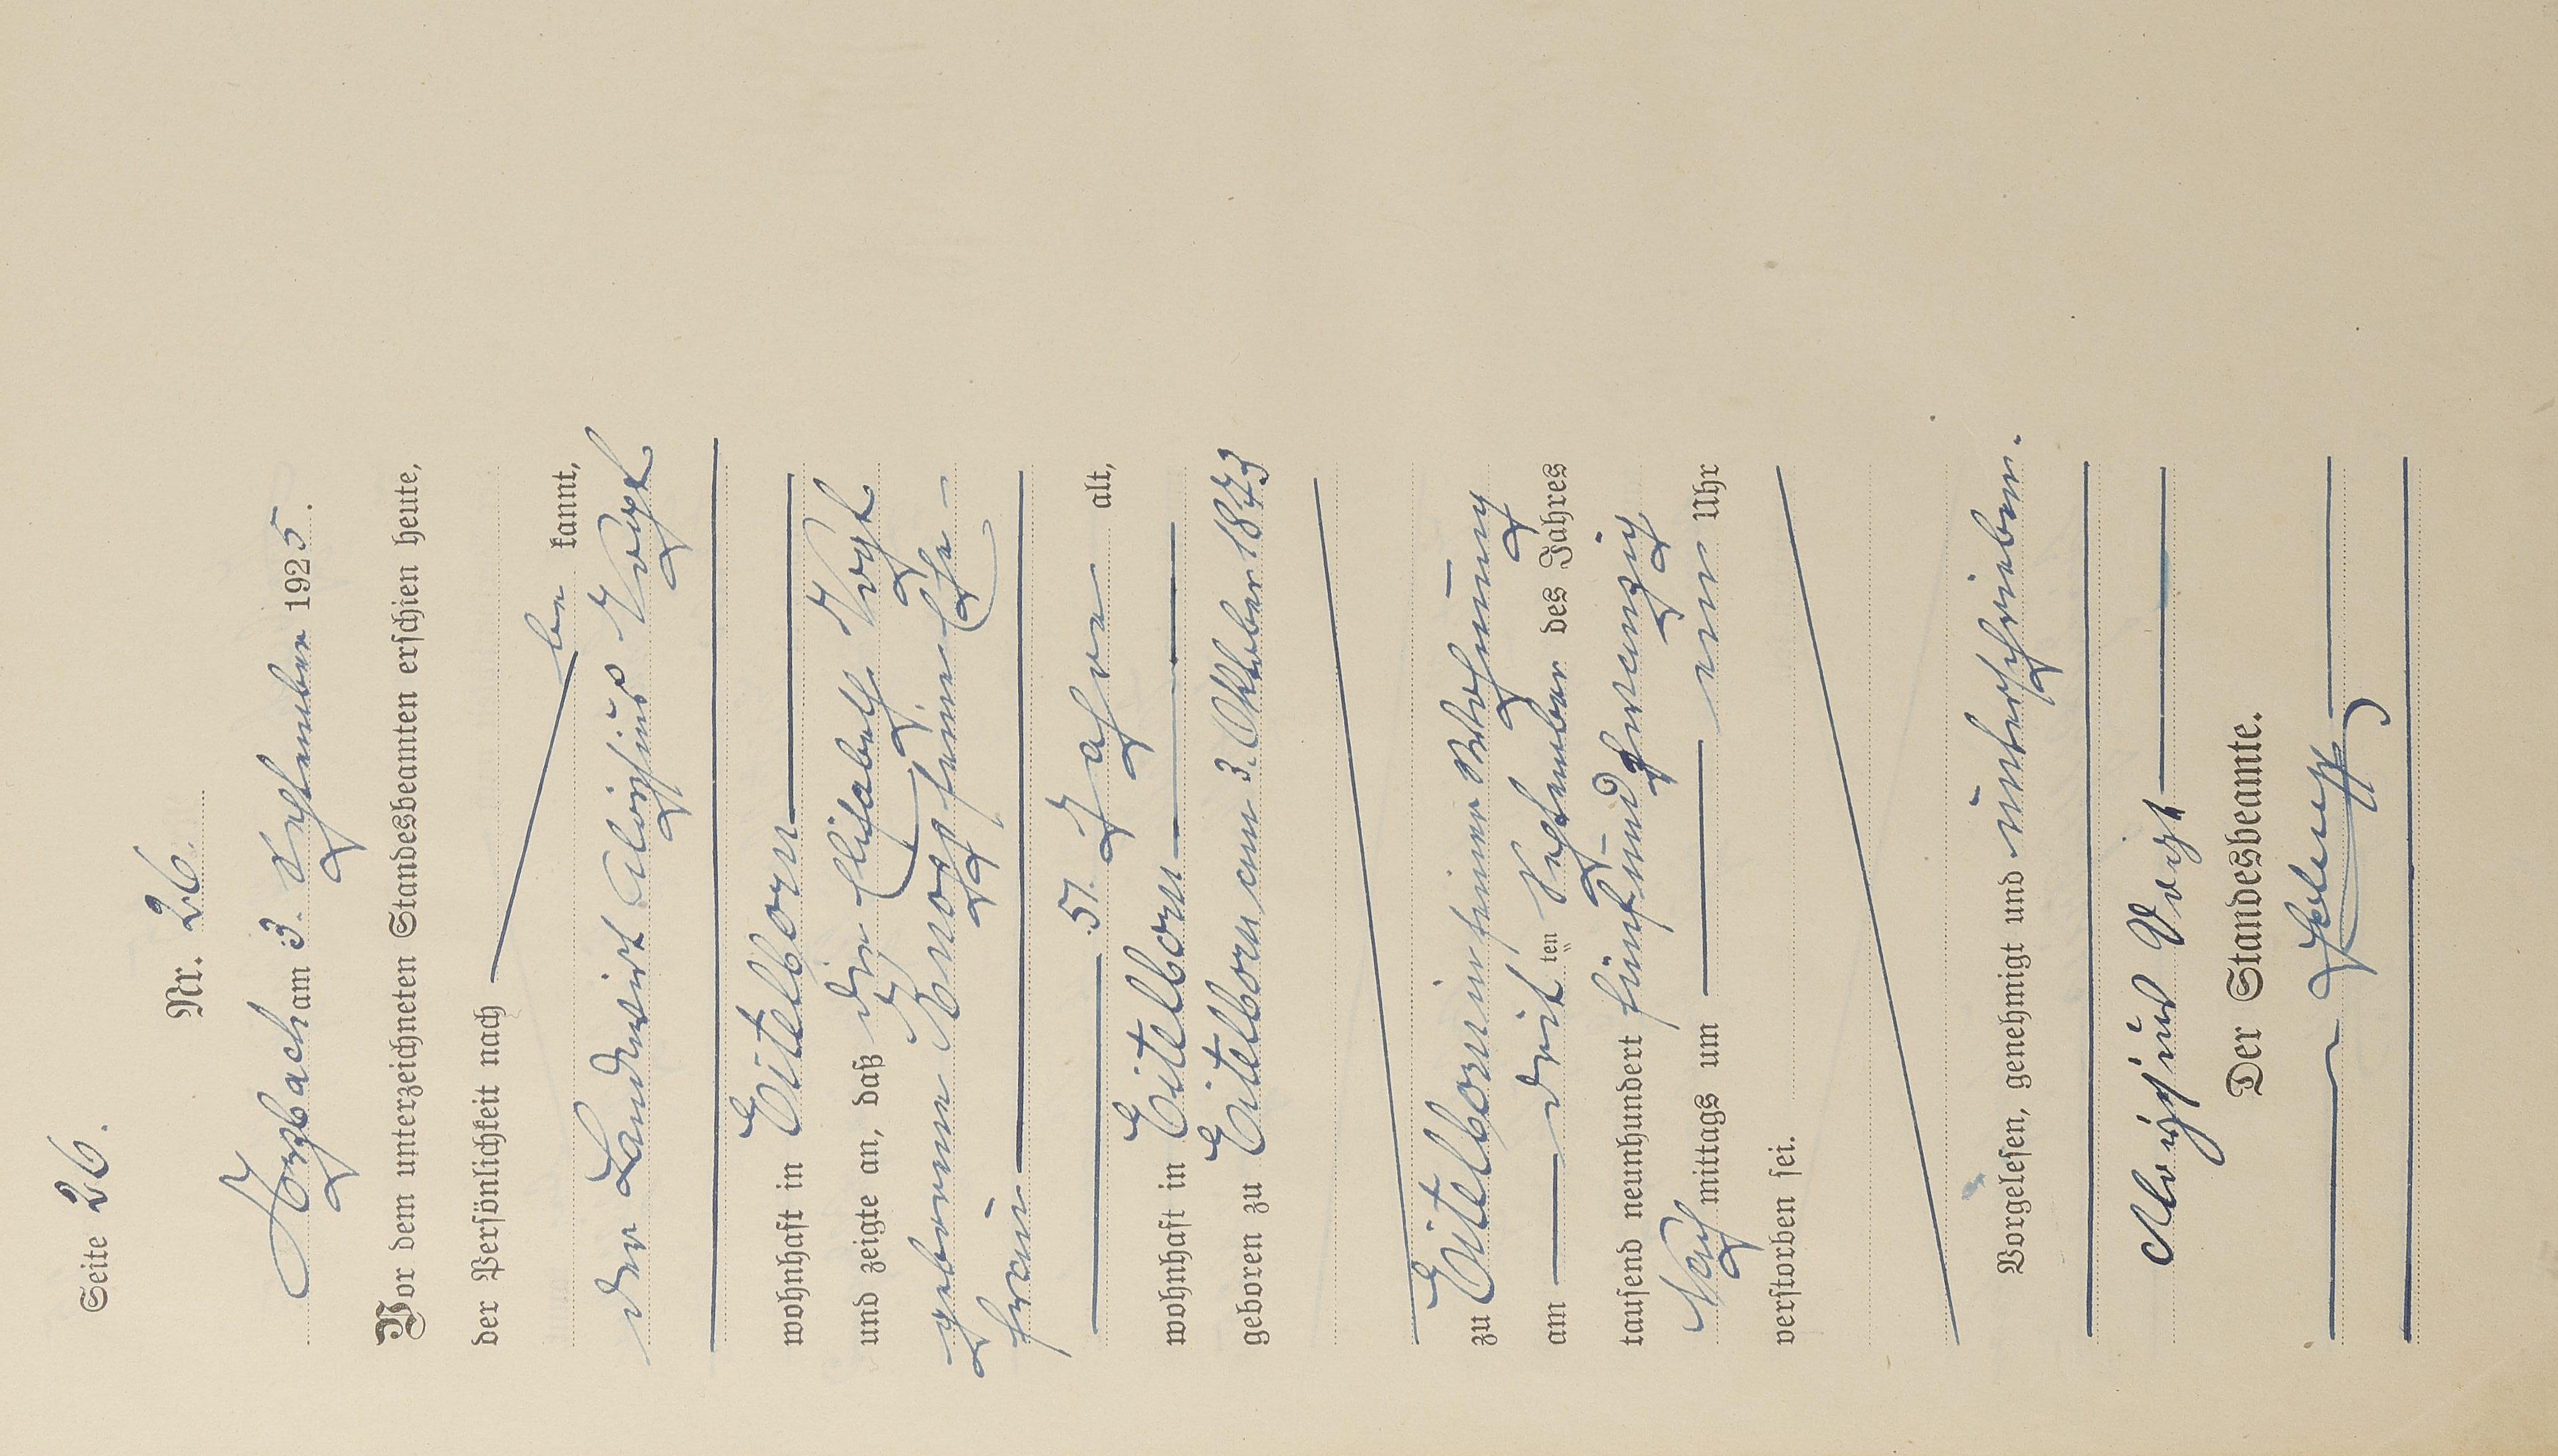 Seite 26.
Nr. 26.
Arzbach am 3. September 1925.
Vor dem unterzeichneten Standesbeamten erschien heute,
der Persönlichkeit nach
be kannt,
der Landwirt Aloysius Vogt
wohnhaft in Eitelborn
und zeigte an, daß die Elisabeth Vogt
geborene Knopp seine Ehe-
frau
51 Jahre alt,
wohnhaft in Eitelborn
geboren zu Eitelborn, am 3. Oktober 1873
zu Eitelborn in seiner Wohnung
am dritten September des Jahres
tausend neunhundert fünfundzwanzig
Nachmittags um ein Uhr
verstorben sei.
Vorgelesen, genehmigt und unterschrieben.
Aloysius Vogt
Der Standesbeamte.